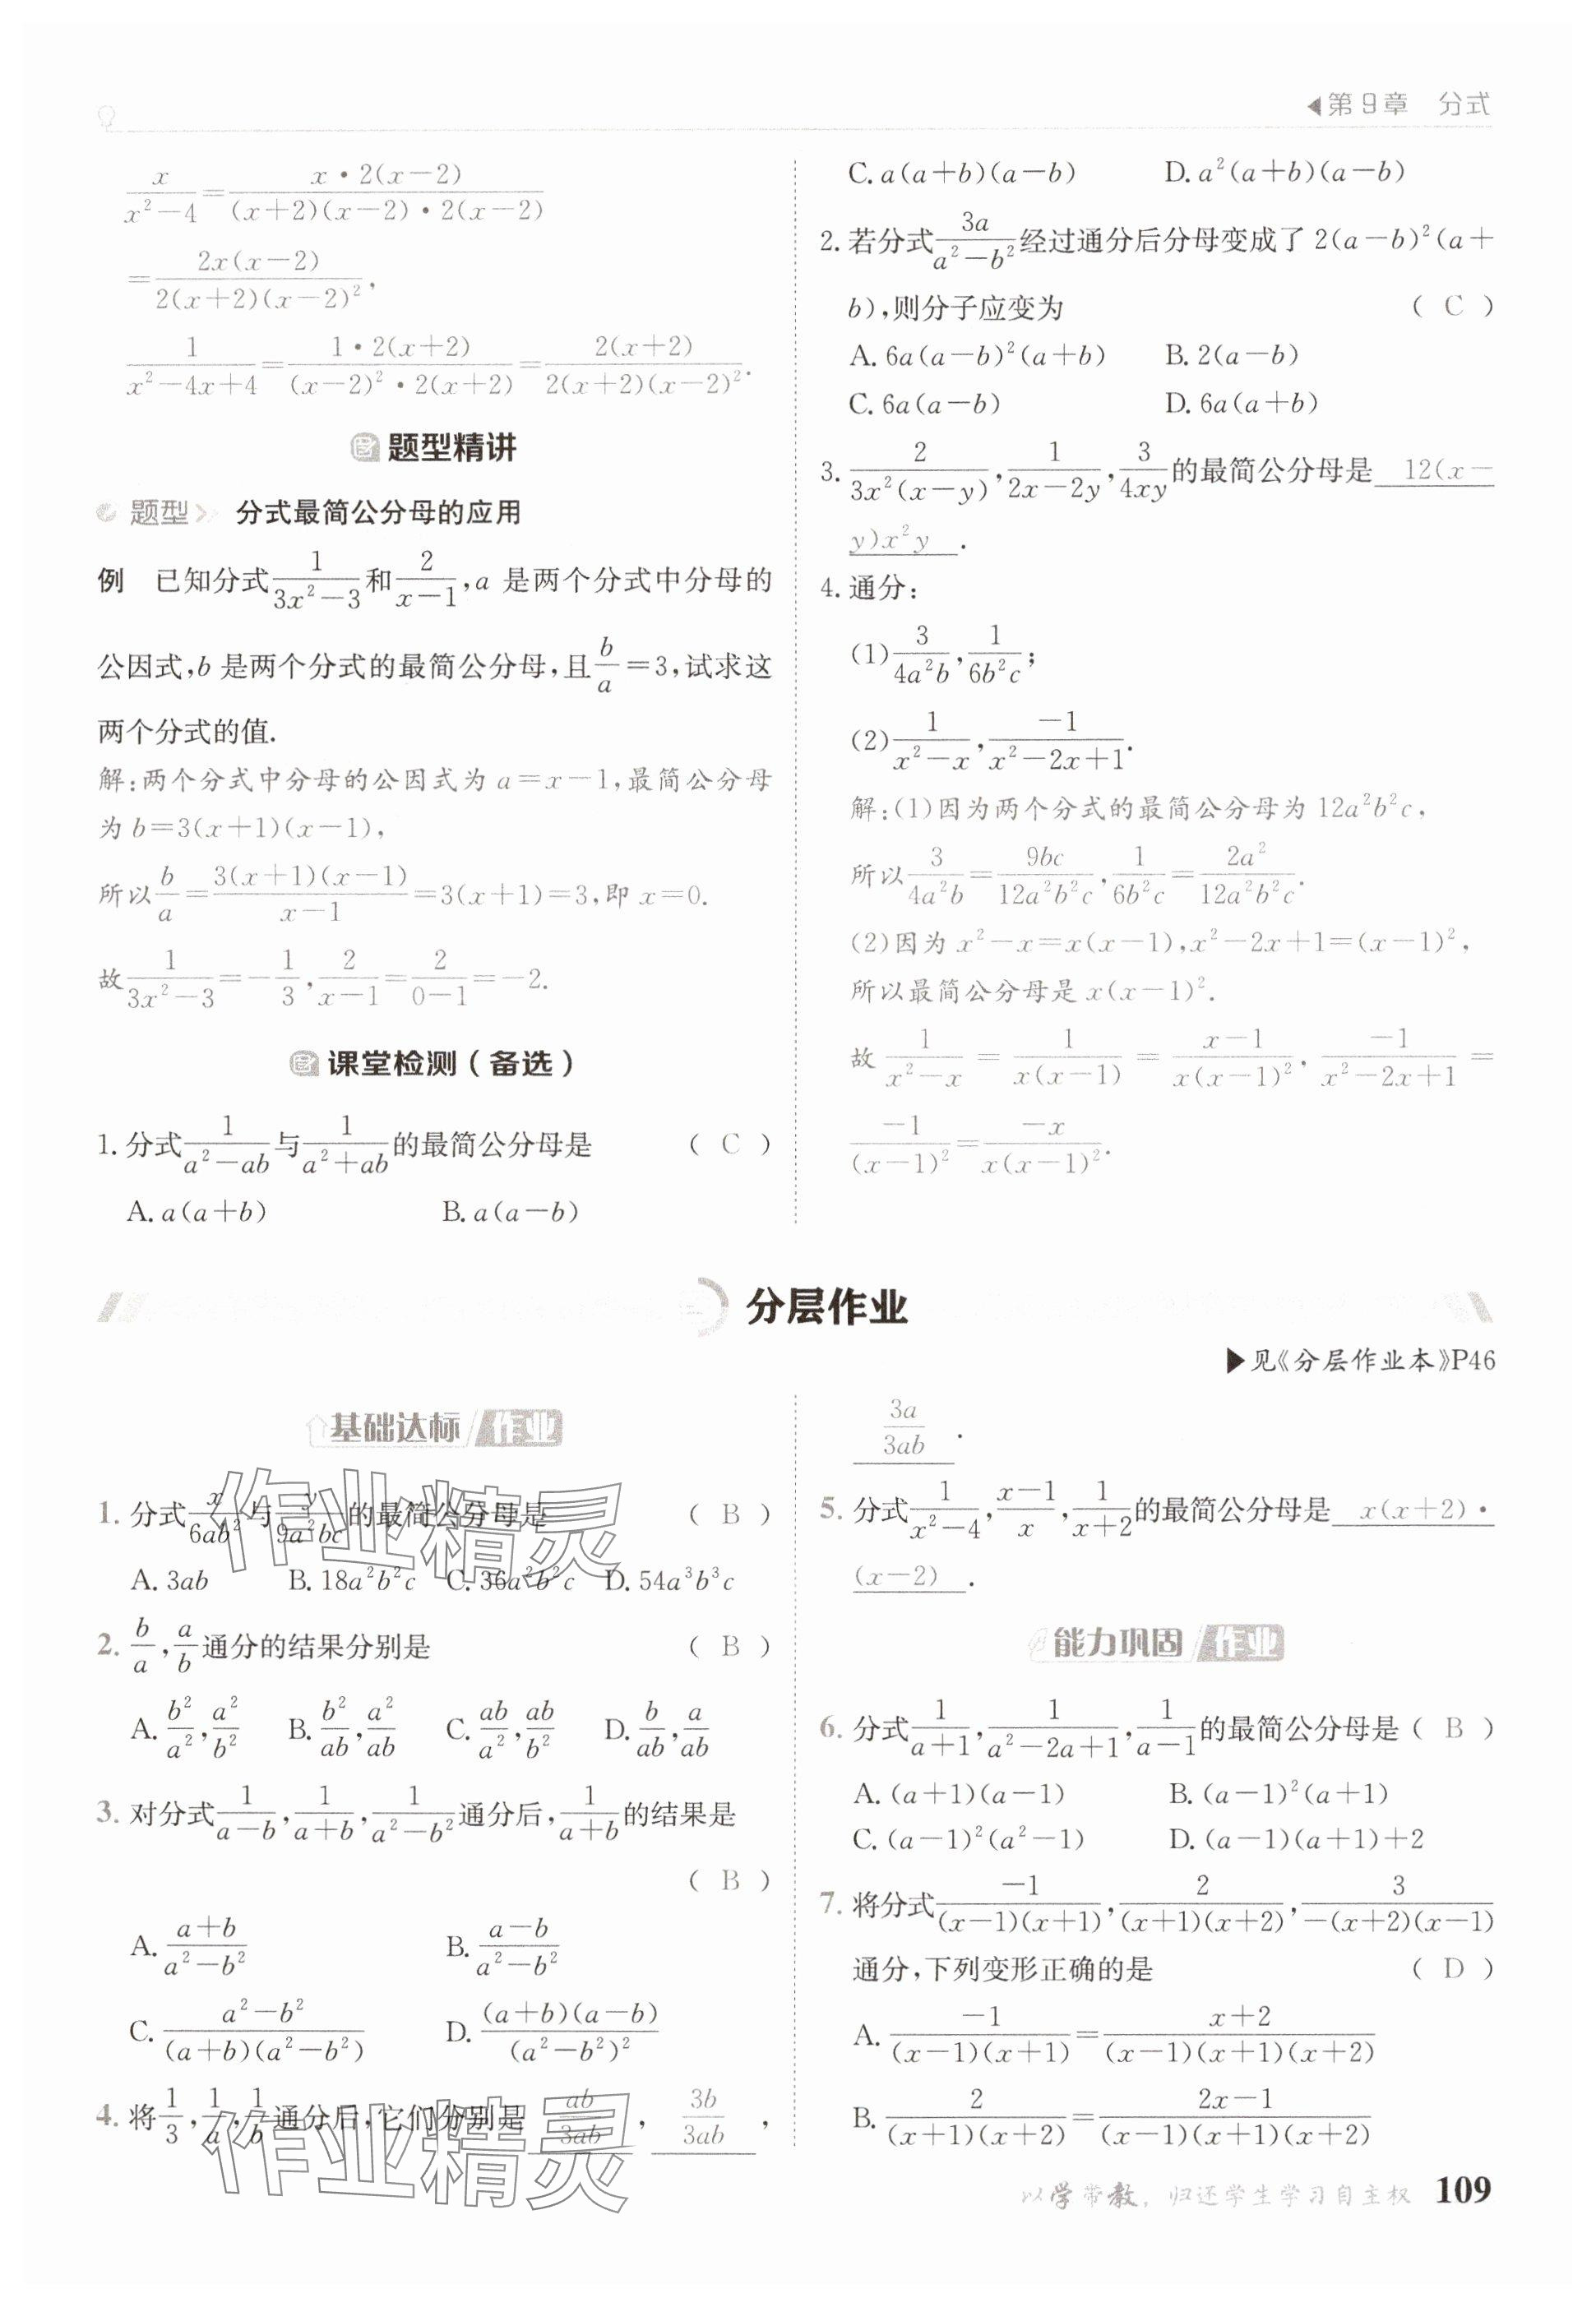 ◀第9章 分式
x/(x²-4)=x·2(x-2)/((x+2)(x-2)·2(x-2))
=2x(x-2)/(2(x+2)(x-2)²),
1/(x²-4x+4)=1·2(x+2)/((x-2)²·2(x+2))=2(x+2)/(2(x+2)(x-2)²).
题型精讲
题型 分式最简公分母的应用
例 已知分式1/(3x²-3)和2/(x-1),a 是两个分式中分母的
公因式,b 是两个分式的最简公分母,且b/a=3,试求这
两个分式的值.
解:两个分式中分母的公因式为 a=x-1,最简公分母
为 b=3(x+1)(x-1),
所以b/a=3(x+1)(x-1)/(x-1)=3(x+1)=3,即 x=0.
故1/(3x²-3)=-1/3,2/(x-1)=2/(0-1)=-2.
课堂检测(备选)
1. 分式1/(a²-ab)与1/(a²+ab)的最简公分母是 ( C )
A. a(a+b) B. a(a-b)
C. a(a+b)(a-b) D. a²(a+b)(a-b)
2. 若分式3a/(a²-b²)经过通分后分母变成了 2(a-b)²(a+
b),则分子应变为 ( C )
A. 6a(a-b)²(a+b) B. 2(a-b)
C. 6a(a-b) D. 6a(a+b)
3. 2/(3x²(x-y)),1/(2x-2y),3/(4xy)的最简公分母是 12(x-
y)x²y .
4. 通分:
(1)3/(4a²b),1/(6b²c);
(2)1/(x²-x),-1/(x²-2x+1).
解:(1)因为两个分式的最简公分母为 12a²b²c,
所以3/(4a²b)=9bc/(12a²b²c),1/(6b²c)=2a²/(12a²b²c).
(2)因为 x²-x=x(x-1),x²-2x+1=(x-1)²,
所以最简公分母是 x(x-1)².
故 1/(x²-x) = 1/(x(x-1)) = (x-1)/(x(x-1)²), -1/(x²-2x+1) =
-1/(x-1)²=-x/(x(x-1)²).
分层作业
▶见《分层作业本》P46
基础达标 作业
1. 分式x/(6ab²)与y/(9a²bc)的最简公分母是 ( B )
A. 3ab B. 18a²b²c C. 36a²b²c D. 54a³b³c
2. b/a,a/b通分的结果分别是 ( B )
A. b²/a²,a²/b² B. b²/ab,a²/ab C. ab/a²,ab/b² D. b/ab,a/ab
3. 对分式1/(a-b),1/(a+b),1/(a²-b²)通分后,1/(a+b)的结果是
( B )
A. (a+b)/(a²-b²) B. (a-b)/(a²-b²)
C. (a²-b²)/((a+b)(a²-b²)) D. (a+b)(a-b)/(a²-b²)²
4. 将1/3,1/a,1/b通分后,它们分别是 ab/3ab , 3b/3ab ,
3a/3ab .
5. 分式1/(x²-4),(x-1)/x,1/(x+2)的最简公分母是 x(x+2)·
(x-2) .
能力巩固 作业
6. 分式1/(a+1),1/(a²-2a+1),1/(a-1)的最简公分母是 ( B )
A. (a+1)(a-1) B. (a-1)²(a+1)
C. (a-1)²(a²-1) D. (a-1)(a+1)+2
7. 将分式-1/((x-1)(x+1)),2/((x+1)(x+2)),3/(-(x+2)(x-1))
通分,下列变形正确的是 ( D )
A. -1/((x-1)(x+1))=(x+2)/((x-1)(x+1)(x+2))
B. 2/((x+1)(x+2))=(2x-1)/((x-1)(x+1)(x+2))
以学带教,归还学生学习自主权 109
作业精灵
作业精灵